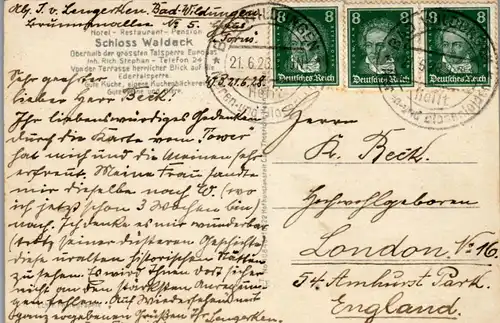 Abs. J. v. Lengerken, Bad-Wildungen
Brunnenallee Nr. 5.
Hotel - Restaurant - Pension
Schloss Waldeck
Oberhalb der grössten Talsperre Europas
Inh. Rich Stephan - Telefon 24
Von der Terrasse herrlicher Blick auf die
Edertalsperre.
gute Küche, eigene
21.6.28.
Sehr geehrter
lieber Herr Beck!
Ihr liebenswürdiges Gedenken
durch die Karte vom Tower
hat mich und die Meinen sehr
erfreut. Meine Frau sandte
mir dieselbe nach W. (wo
ich jetzt schon 3 Wochen bin)
nach. Ich denke es mir wunderbar
(trotz seiner düsteren Geschichte)
diese uralten historischen Stätten
zu sehen. Es wird Ihnen dort sicher
nicht an den stärksten Anregun-
gen fehlen. Auf Wiedersehen mit
ganz ergebenen Grüßen Ihr Lengerken.
8 8 8
Deutsches Reich Deutsches Reich Deutsches Reich
21.6.28
Herrn
K. Beck.
Hochwohlgeboren
London. N. 16
54. Amhurst Park.
England.